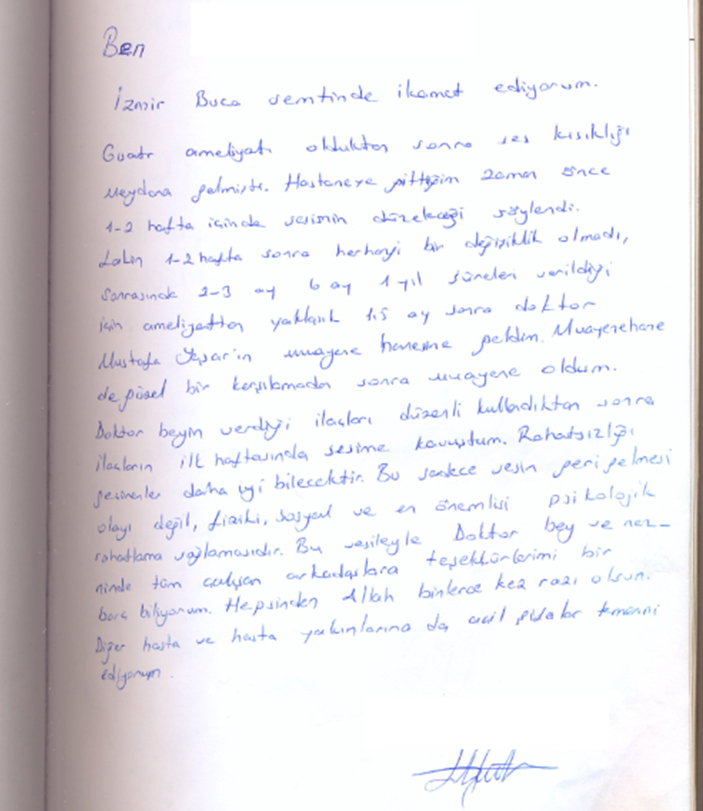 Ben
İzmir Buca semtinde ikamet ediyorum.
Guatr ameliyatı olduktan sonra ses kısıklığı
meydana gelmişti. Hastaneye gittiğim zaman önce
1-2 hafta içinde sesimin düzeleceği söylendi.
Lakin 1-2 hafta sonra herhangi bir değişiklik olmadı,
sonrasında 2-3 ay 6 ay 1 yıl süreler verildiği
için ameliyattan yaklaşık 1,5 ay sonra doktor
Mustafa Yaşar'ın muayene hanesine geldim. Muayenehane
de güzel bir karşılamadan sonra muayene oldum.
Doktor beyin verdiği ilaçları düzenli kullandıktan sonra
ilaçların ilk haftasında sesime kavuştum. Rahatsızlığı
geçirenler daha iyi bilecektir. Bu sadece sesin geri gelmesi
olayı değil, fiziki, sosyal ve en önemlisi psikolojik
rahatlama sağlamasıdır. Bu vesileyle Doktor bey ve
ninde tüm çalışan arkadaşlara teşekkürlerimi bir
borç biliyorum. Hepsinden Allah binlerce kez razı olsun.
Diğer hasta ve hasta yakınlarına da acil şifalar temenni
ediyorum.